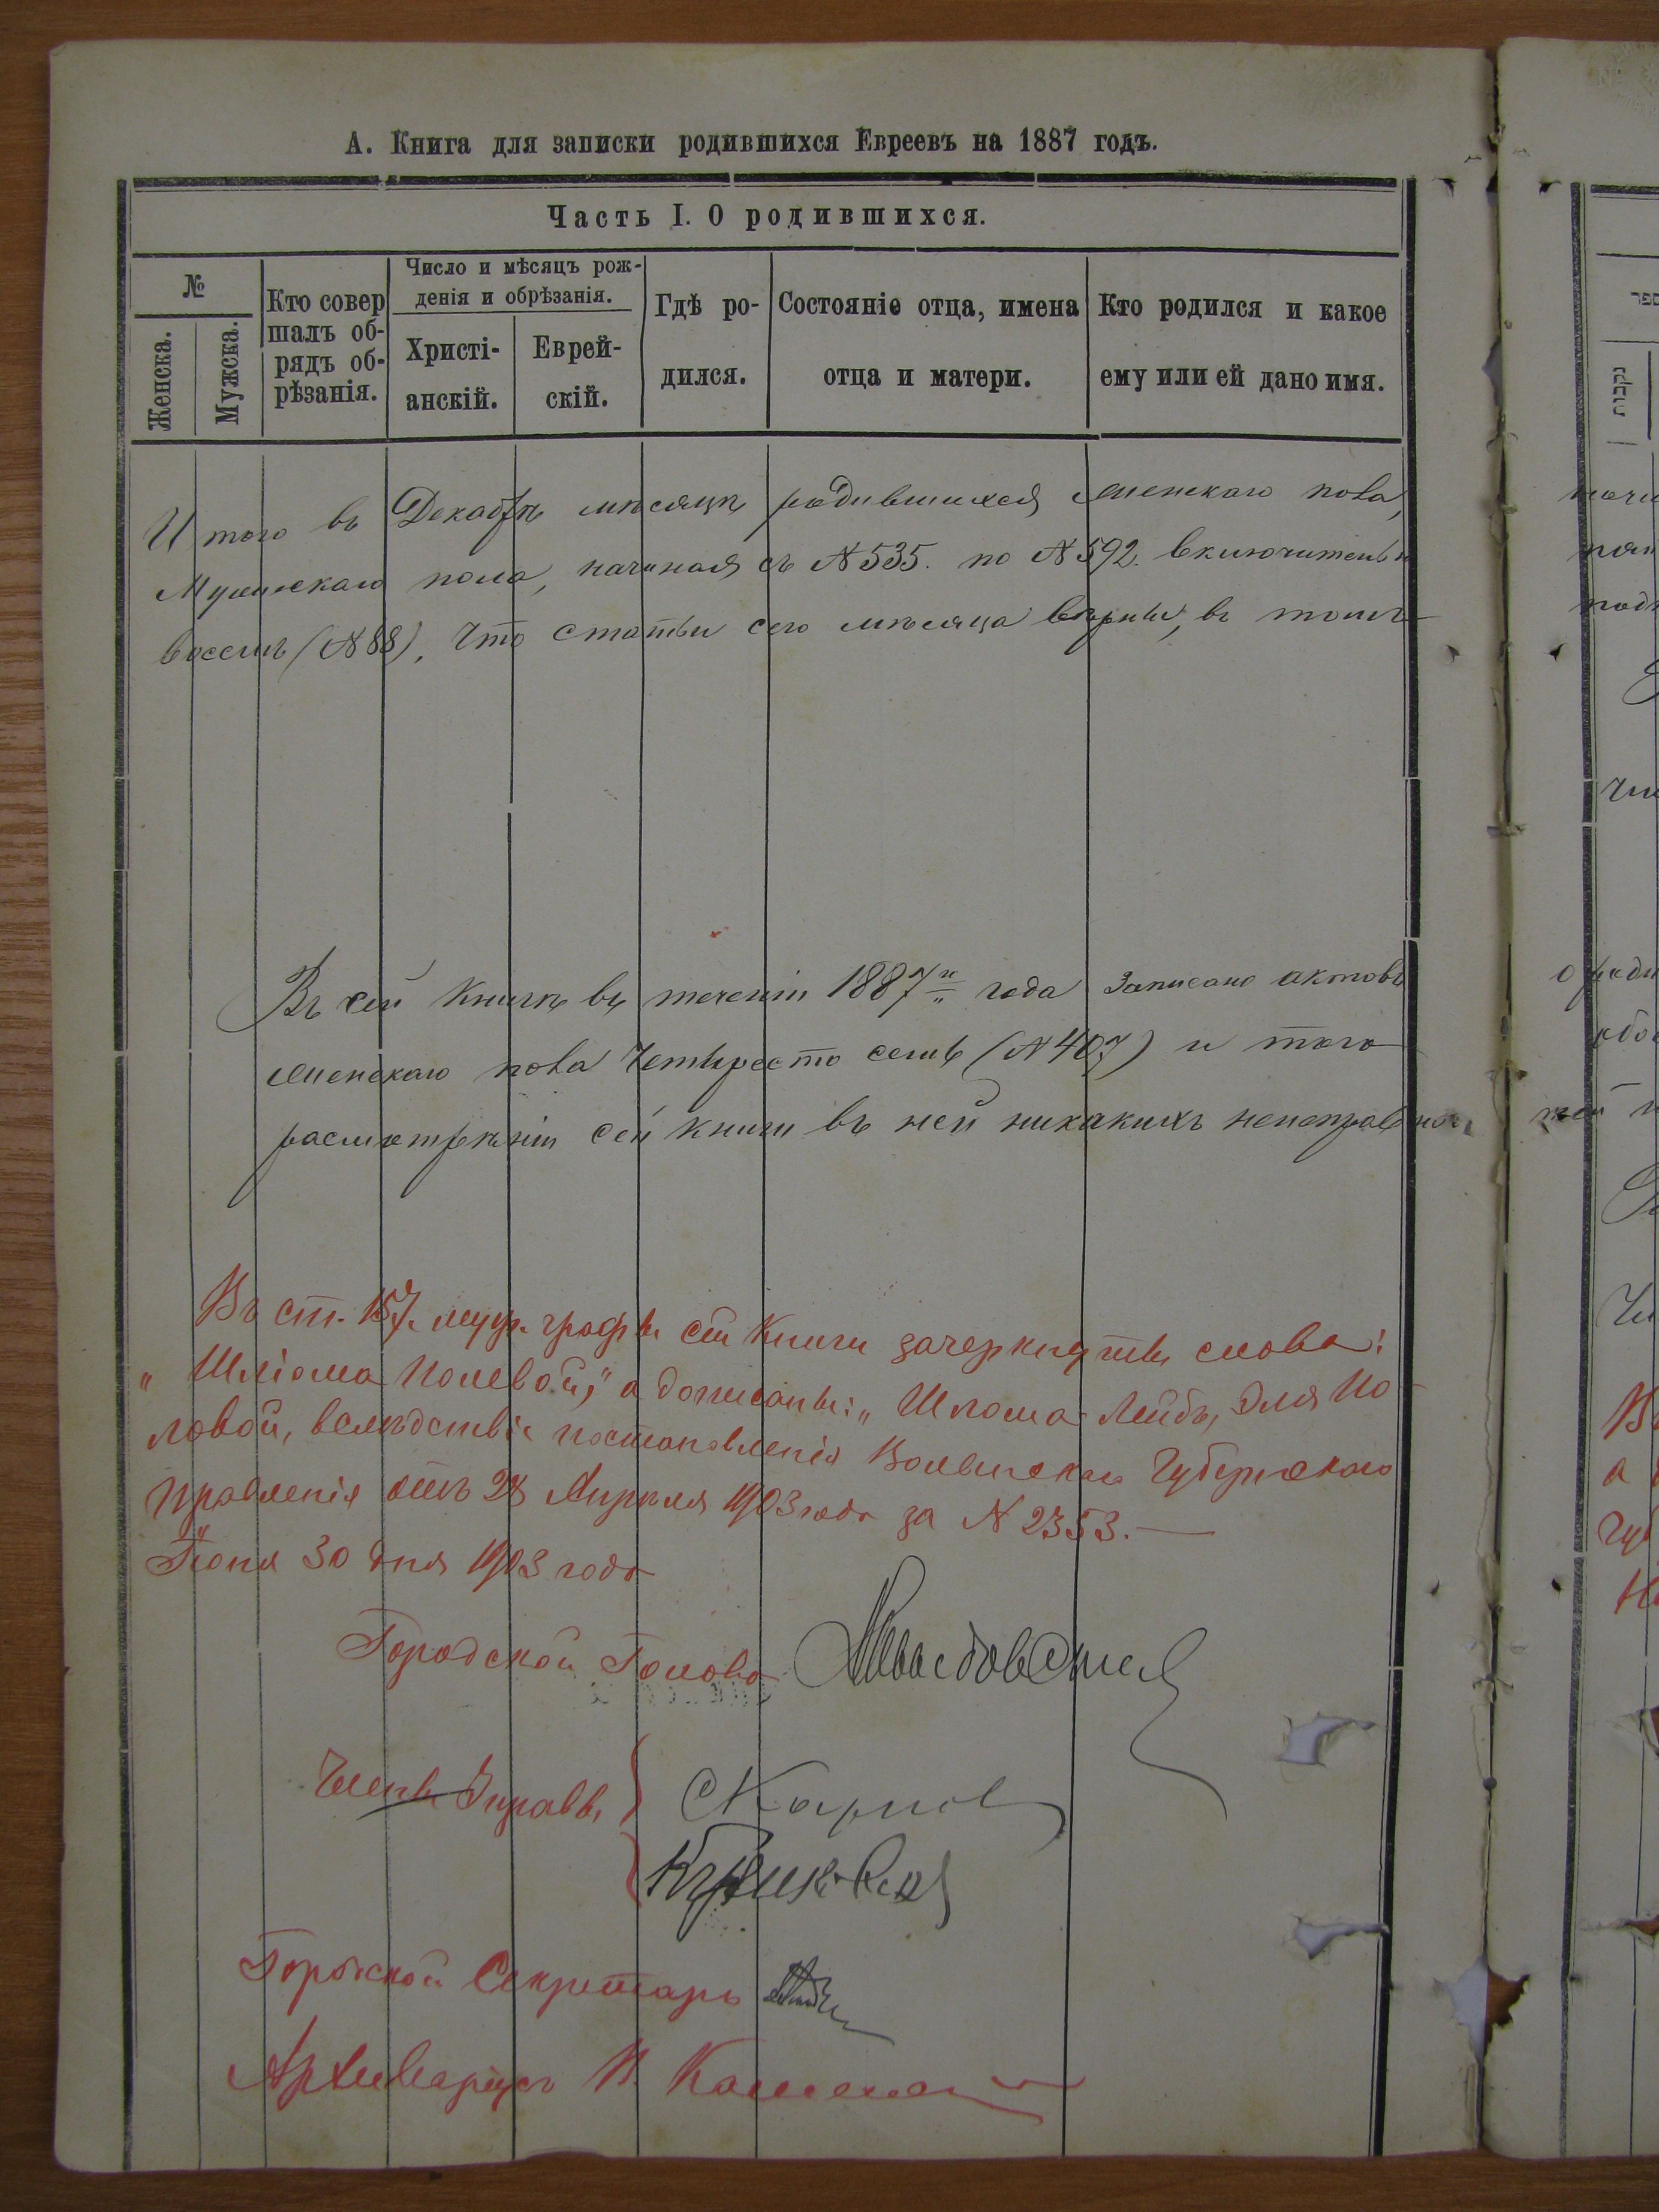 А. Книга для записки родившихся Евреевъ на 1887 годъ.
Часть I. О родившихся.
№
Женска.
Мужска.
Кто совер
шалъ об-
рядъ об-
рѣзанія.
Число и мѣсяцъ рож-
денія и обрѣзанія.
Христі-
анскій.
Еврей-
скій.
Гдѣ ро-
дился.
Состояніе отца, имена
отца и матери.
Кто родился и какое
ему или ей дано имя.
И того въ Декабрѣ мѣсяцѣ родившихся женскаго пола,
Мужескаго пола, начиная съ №535. по №592. включительно
восемь (№88), Что статьи сего мѣсяца вѣрны, въ томъ
Въ сей книгѣ въ теченіи 1887 года записано актовъ
женскаго пола Четыресто семь (№407) и того
расмотрѣніи сей книги въ ней никакихъ
Въ ст. 157. муж. графы сей Книги зачеркнуты слова:
„Шліома Полевой," а дописаны: „Шлома-Лейбъ, Эля По-
ловой, вслѣдствіе постановленія Волынскаго Губернскаго
Правленія отъ 28 Апрѣля 1903 года за №2353.—
Іюня 30 дня 1903 года
Городской Голова
Члены Управы
Городской Секретарь
Архиваріусъ
ספר
נקבות